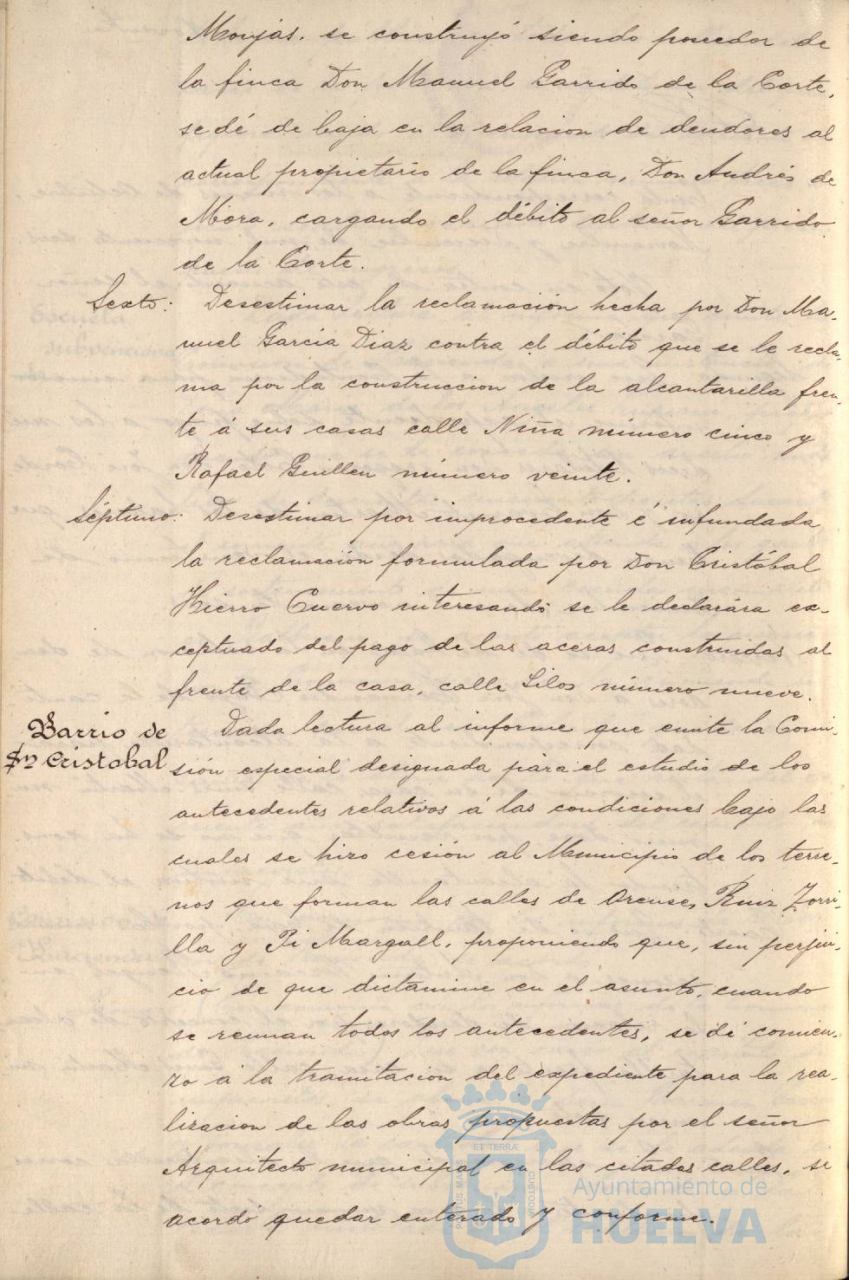 Monjas, se construyó siendo poseedor de
la finca Don Manuel Garrido de la Corte,
se dé de baja en la relacion de deudores al
actual propietario de la finca, Don Andrés de
Mora, cargando el débito al señor Garrido
de la Corte.
Sexto: Desestimar la reclamación hecha por Don Ma-
nuel García Diaz contra el débito que se le recla-
ma por la construccion de la alcantarilla fren-
te á sus casas calle Niña número cinco y
Rafael Guillen número veinte.
Séptimo: Desestimar por improcedente é infundada
la reclamación formulada por Don Cristóbal
Hierro Cuervo interesando se le declarára ex-
ceptuado del pago de las aceras construidas al
frente de la casa, calle Silos número nueve.
Barrio de
Sn Cristobal
Dada lectura al informe que emite la Comi-
sión especial designada para el estudio de los
antecedentes relativos á las condiciones bajo las
cuales se hizo cesión al Municipio de los terre-
nos que forman las calles de Orense, Ruiz Zorri-
lla y Pi Margall, proponiendo que, sin perjui-
cio de que dictamine en el asunto, cuando
se reunan todos los antecedentes, se dé comien-
zo á la tramitacion del expediente para la rea-
lizacion de las obras propuestas por el señor
Arquitecto municipal en las citadas calles, se
acordó quedar enterado y conforme.
ET TERRA
Ayuntamiento de
HUELVA